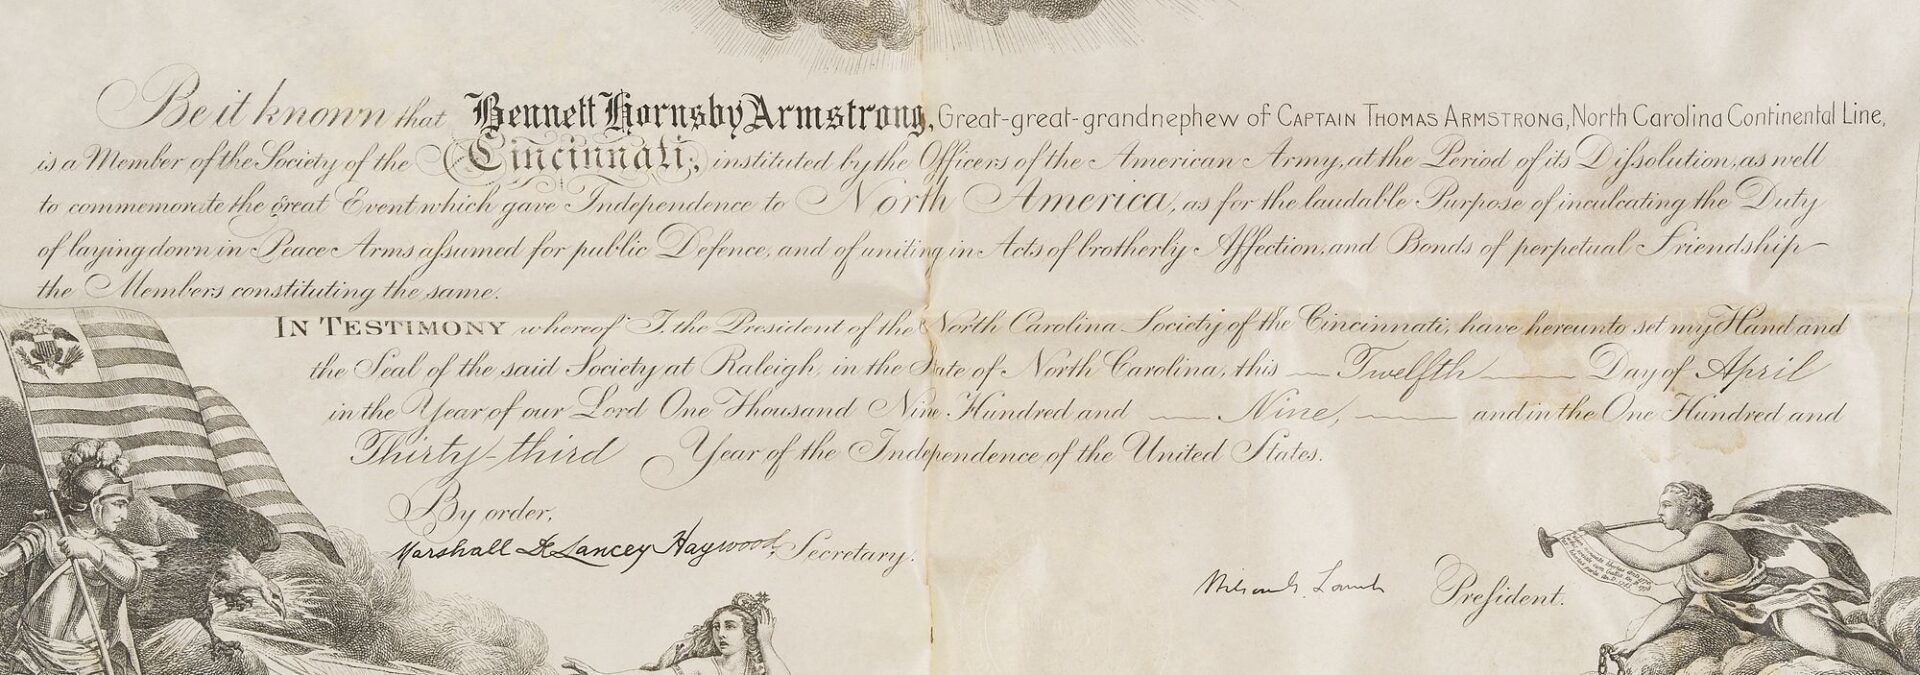 Be it known that Bennett Hornsby Armstrong, Great-great-grandnephew of CAPTAIN THOMAS ARMSTRONG, North Carolina Continental Line,
is a Member of the Society of the Cincinnati, instituted by the Officers of the American Army, at the Period of its Dissolution, as well
to commemorate the great Event which gave Independence to North America, as for the laudable Purpose of inculcating the Duty
of laying down in Peace Arms assumed for public Defence, and of uniting in Acts of brotherly Affection, and Bonds of perpetual Friendship
the Members constituting the same.
IN TESTIMONY whereof I, the President of the North Carolina Society of the Cincinnati, have hereunto set my Hand and
the Seal of the said Society at Raleigh, in the State of North Carolina, this Twelfth Day of April
in the Year of our Lord One Thousand Nine Hundred and Nine, and in the One Hundred and
Thirty-third Year of the Independence of the United States.
By order,
Marshall DeLancey Haywood, Secretary.
Wilson G. Lamb President.